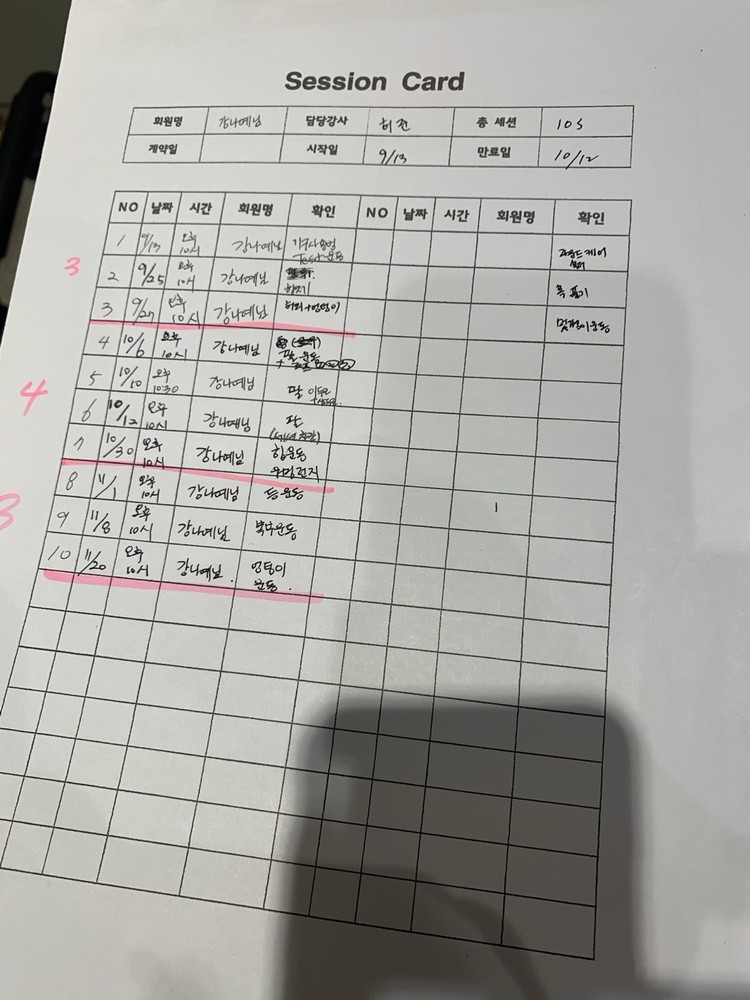 Session Card
회원명 강나예님 담당강사 허진 총 세션 10S
계약일 시작일 9/13 만료일 10/12
NO 날짜 시간 회원명 확인 NO 날짜 시간 회원명 확인
1 9/13 오후 10시 강나예님 기구사용법
Test 운동
3
2 9/25 오후 10시 강나예님 하체
3 9/27 오후 10시 강나예님 허리+엉덩이
4 10/6 오후 10시 강나예님
팔 운동
5 10/10 오후 10:30 강나예님 팔
4
6 10/12 오후 10시 강나예님 팔
7 10/30 오후 10시 강나예님 힙운동
8 11/1 오후 10시 강나예님 등운동
3
9 11/8 오후 10시 강나예님 복부운동
10 11/20 오후 10시 강나예님. 엉덩이
운동.